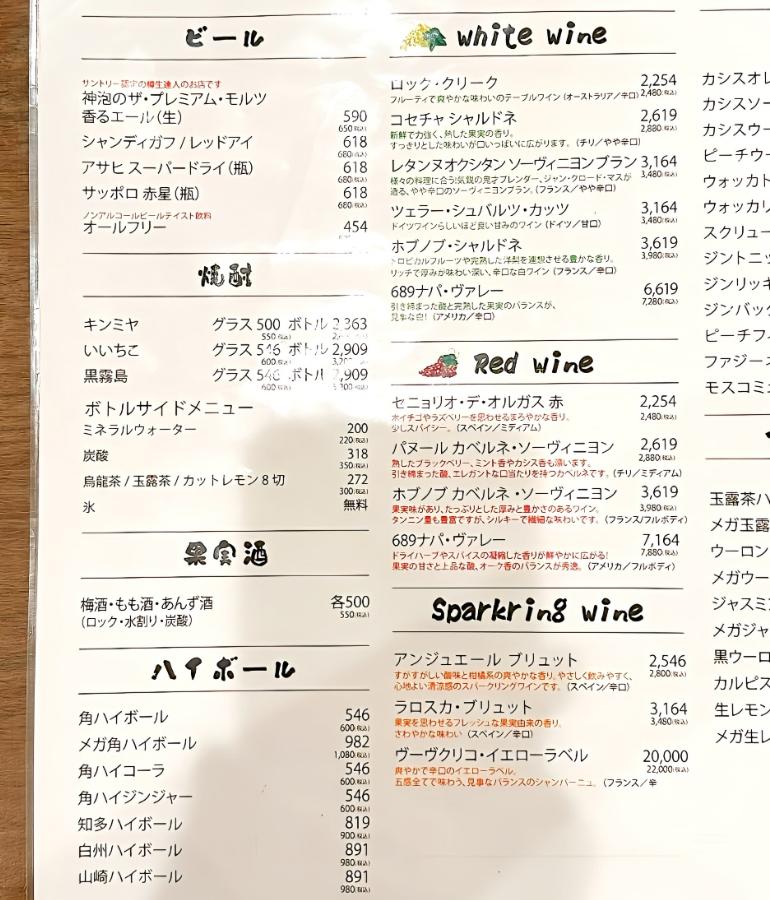 ビール
サントリー認定の樽生達人のお店です
神泡のザ・プレミアム・モルツ
香るエール(生) 590
650(税込)
シャンディガフ / レッドアイ 618
680(税込)
アサヒ スーパードライ(瓶) 618
680(税込)
サッポロ 赤星(瓶) 618
680(税込)
ノンアルコールビールテイスト飲料
オールフリー 454
焼酎
キンミヤ グラス 500 ボトル 2,363
550(税込)
いいちこ グラス 546 ボトル 2,909
600(税込)
黒霧島 グラス 546 ボトル 2,909
600(税込)
ボトルサイドメニュー
ミネラルウォーター 200
220(税込)
炭酸 318
350(税込)
烏龍茶 / 玉露茶 / カットレモン 8 切 272
300(税込)
氷 無料
果実酒
梅酒・もも酒・あんず酒 各500
(ロック・水割り・炭酸) 550(税込)
ハイボール
角ハイボール 546
600(税込)
メガ角ハイボール 982
1,080(税込)
角ハイコーラ 546
600(税込)
角ハイジンジャー 546
600(税込)
知多ハイボール 819
900(税込)
白州ハイボール 891
980(税込)
山崎ハイボール 891
980(税込)
white wine
ロック・クリーク 2,254
フルーティで爽やかな味わいのテーブルワイン (オーストラリア/辛口) 2,480(税込)
コセチャ シャルドネ 2,619
新鮮で力強く、熟した果実の香り。 2,880(税込)
すっきりとした味わいが口いっぱいに広がります。(チリ/やや辛口)
レタンヌオクシタン ソーヴィニヨンブラン 3,164
様々の料理に合う!気鋭の鬼才ブレンダー、ジャン・クロード・マスが 3,480(税込)
造る、やや辛口のソーヴィニヨンブラン。(フランス/やや辛口)
ツェラー・シュバルツ・カッツ 3,164
ドイツワインらしいほど良い甘みのワイン (ドイツ/甘口) 3,480(税込)
ホブノブ・シャルドネ 3,619
トロピカルフルーツや完熟した洋梨を連想させる豊かな香り。 3,980(税込)
リッチで厚みが味わい深い、辛口な白ワイン (フランス/辛口)
689ナパ・ヴァレー 6,619
引き締まった酸と完熟した果実のバランスが、 7,280(税込)
見事な白! (アメリカ/辛口)
Red wine
セニョリオ・デ・オルガス 赤 2,254
木イチゴやラズベリーを思わせるまろやかな香り。 2,480(税込)
少しスパイシー。(スペイン/ミディアム)
パヌール カベルネ・ソーヴィニヨン 2,619
熟したブラックベリー、ミント香やカシス香も漂います。 2,880(税込)
引き締まった酸、エレガントな口当たりを持つカベルネです。(チリ/ミディアム)
ホブノブ カベルネ・ソーヴィニヨン 3,619
果実味があり、たっぷりとした厚みと豊かさのあるワイン。 3,980(税込)
タンニン量も豊富ですが、シルキーで繊細な味わいです。(フランス/フルボディ)
689ナパ・ヴァレー 7,164
ドライハーブやスパイスの凝縮した香りが鮮やかに広がる! 7,880(税込)
果実の甘さと上品な酸、オーク香のバランスが秀逸。(アメリカ/フルボディ)
Sparkring wine
アンジュエール ブリュット 2,546
すがすがしい酸味と柑橘系の爽やかな香り。やさしく飲みやすく、 2,800(税込)
心地よい清涼感のスパークリングワインです。(スペイン/辛口)
ラロスカ・ブリュット 3,164
果実を思わせるフレッシュな果実由来の香り。 3,480(税込)
さわやかな味わい (スペイン/辛口)
ヴーヴクリコ・イエローラベル 20,000
爽やかで辛口のイエローラベル。 22,000(税込)
五感全てで味わう、見事なバランスのシャンパーニュ。(フランス/辛
カシスオレ
カシスソー
カシスウー
ピーチウー
ウォッカト
ウォッカリ
スクリュー
ジントニッ
ジンリッキ
ジンバック
ピーチフィ
ファジーネ
モスコミュ
玉露茶ハ
メガ玉露
ウーロン
メガウー
ジャスミン
メガジャ
黒ウーロ
カルピス
生レモン
メガ生レ